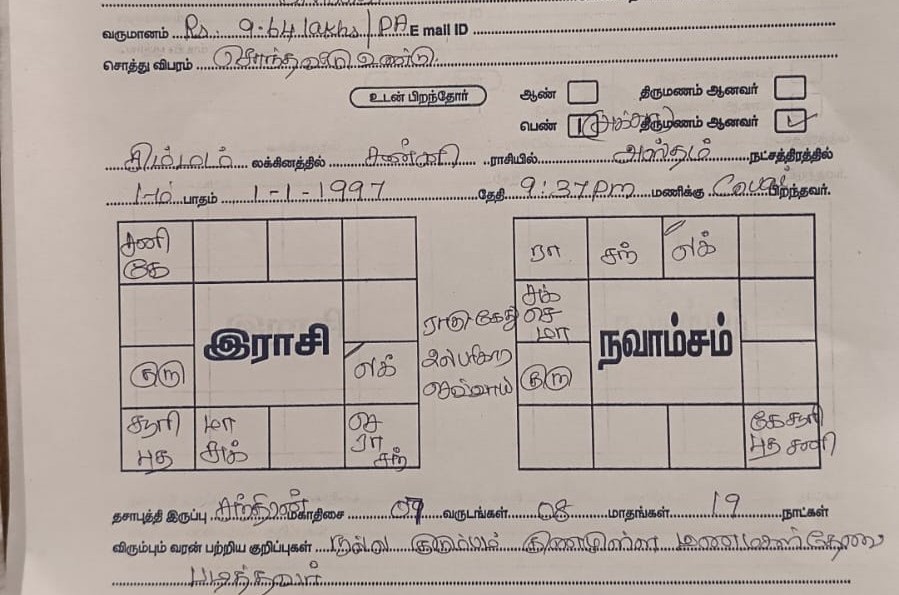 வருமானம் Rs. 9.64 lakhs / PA E mail ID
சொத்து விபரம் சொந்தவீடு உண்டு.
உடன் பிறந்தோர் ஆண் திருமணம் ஆனவர்
பெண் 1 (அக்கா) திருமணம் ஆனவர் ✓
சிம்மம் லக்கினத்தில் கன்னி ராசியில் அஸ்தம் நட்சத்திரத்தில்
1-ம் பாதம் 1-1-1997 தேதி 9:37 pm மணிக்கு பிறந்தவர்.
சனி
கே
ரா சந் லக்
இராசி
குரு லக்
ராகு கேது
செவ்வாய்
நவாம்சம்
சுக்
செ
மா
குரு
சூரி
புத
மா
சுக்
செ
ரா
சந்
கே சூரி
புத சனி
தசாபுத்தி இருப்பு சந்திரன் மகாதிசை 09 வருடங்கள் 08 மாதங்கள் 19 நாட்கள்
விரும்பும் வரன் பற்றிய குறிப்புகள் நல்ல குடும்பம் குணமுள்ள மணமகன் தேவை
படித்தவர்